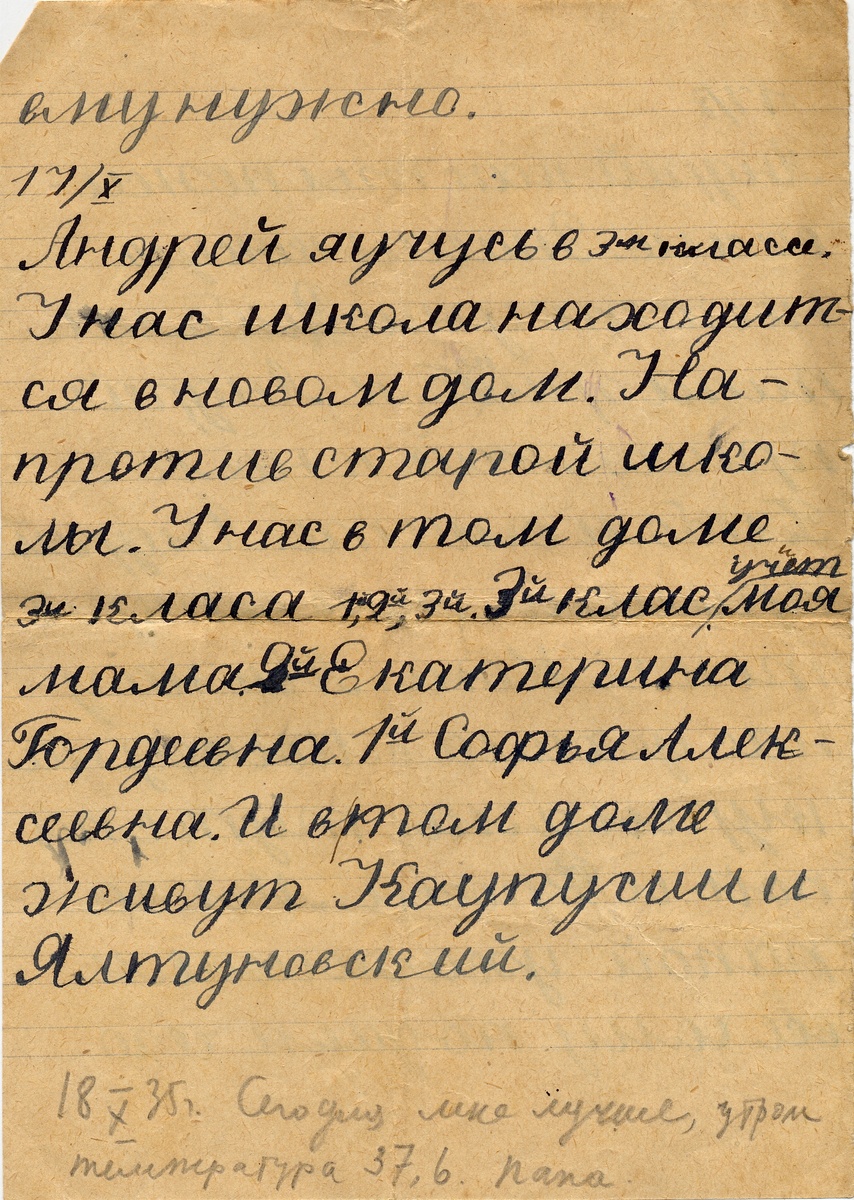 ему нужно.
17/X
Андрей я учусь в 3м класе.
У нас школа находит-
ся в новом дом. На-
против старой шко-
лы. У нас в том доме
учет
3и класа 1й, 2й, 3й. 3й клас моя
мама. 2й Екатерина
Гордеевна. 1й Софья Алек-
сеевна. И в том доме
живут и
Ялтуновский.
18 X 35г. Сегодня мне лучше, утром
температура 37,6. папа